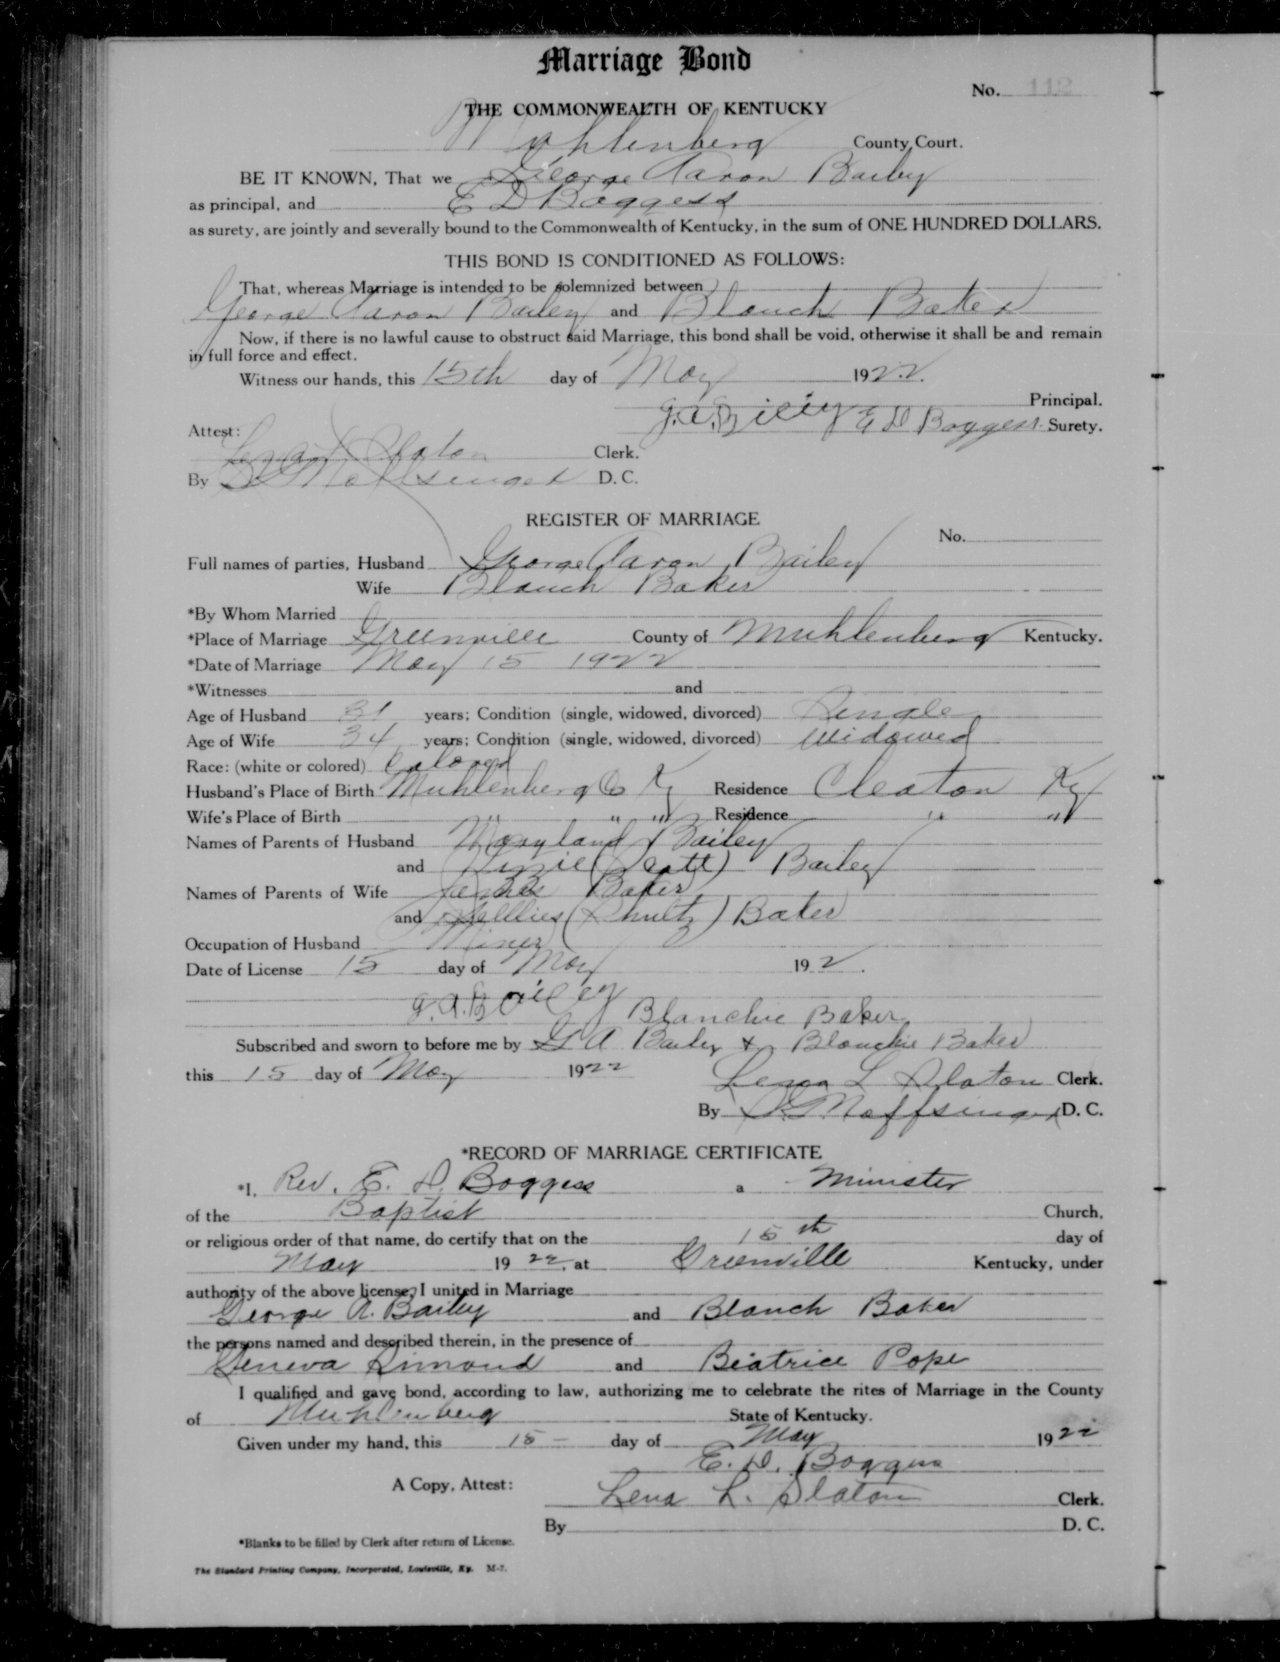 Marriage Bond
No. 112
THE COMMONWEALTH OF KENTUCKY
Muhlenberg County Court.
BE IT KNOWN, That we George Aaron Bailey
as principal, and E D Boggess
as surety, are jointly and severally bound to the Commonwealth of Kentucky, in the sum of ONE HUNDRED DOLLARS.
THIS BOND IS CONDITIONED AS FOLLOWS:
That, whereas Marriage is intended to be solemnized between
George Aaron Bailey and Blanch Baker
Now, if there is no lawful cause to obstruct said Marriage, this bond shall be void, otherwise it shall be and remain
in full force and effect.
Witness our hands, this 15th day of May 1922.
Principal.
G. A. Bailey E D Boggess Surety.
Attest:
Lena L Slaton Clerk.
By Noffsinger D. C.
REGISTER OF MARRIAGE
No.
Full names of parties, Husband George Aaron Bailey
Wife Blanch Baker
*By Whom Married
*Place of Marriage Greenville County of Muhlenberg Kentucky.
*Date of Marriage May 15 1922
*Witnesses and
Age of Husband 31 years; Condition (single, widowed, divorced) Single
Age of Wife 34 years; Condition (single, widowed, divorced) Widowed
Race: (white or colored) Colored
Husband's Place of Birth Muhlenberg Co Ky Residence Cleaton Ky
Wife's Place of Birth " " " Residence " "
Names of Parents of Husband Maryland Bailey
and Bailey
Names of Parents of Wife Baker
and (Shultz) Baker
Occupation of Husband Miner
Date of License 15 day of May 192.
G. A. Bailey Blanchie Baker
Subscribed and sworn to before me by G A Bailey & Blanchie Baker
this 15 day of May 1922
Lena L Slaton Clerk.
By Noffsinger D. C.
*RECORD OF MARRIAGE CERTIFICATE
*I, Rev. E. D. Boggess a Minister
of the Baptist Church,
or religious order of that name, do certify that on the 15th day of
May 1922, at Greenville Kentucky, under
authority of the above license, I united in Marriage
George A. Bailey and Blanch Baker
the persons named and described therein, in the presence of
Geneva Simond and Beatrice Pope
I qualified and gave bond, according to law, authorizing me to celebrate the rites of Marriage in the County
of Muhlenberg State of Kentucky.
Given under my hand, this 15 - day of May 1922
E. D. Boggess
A Copy, Attest: Lena L. Slaton Clerk.
By D. C.
*Blanks to be filled by Clerk after return of License.
The Standard Printing Company, Incorporated, Louisville, Ky. M-7.